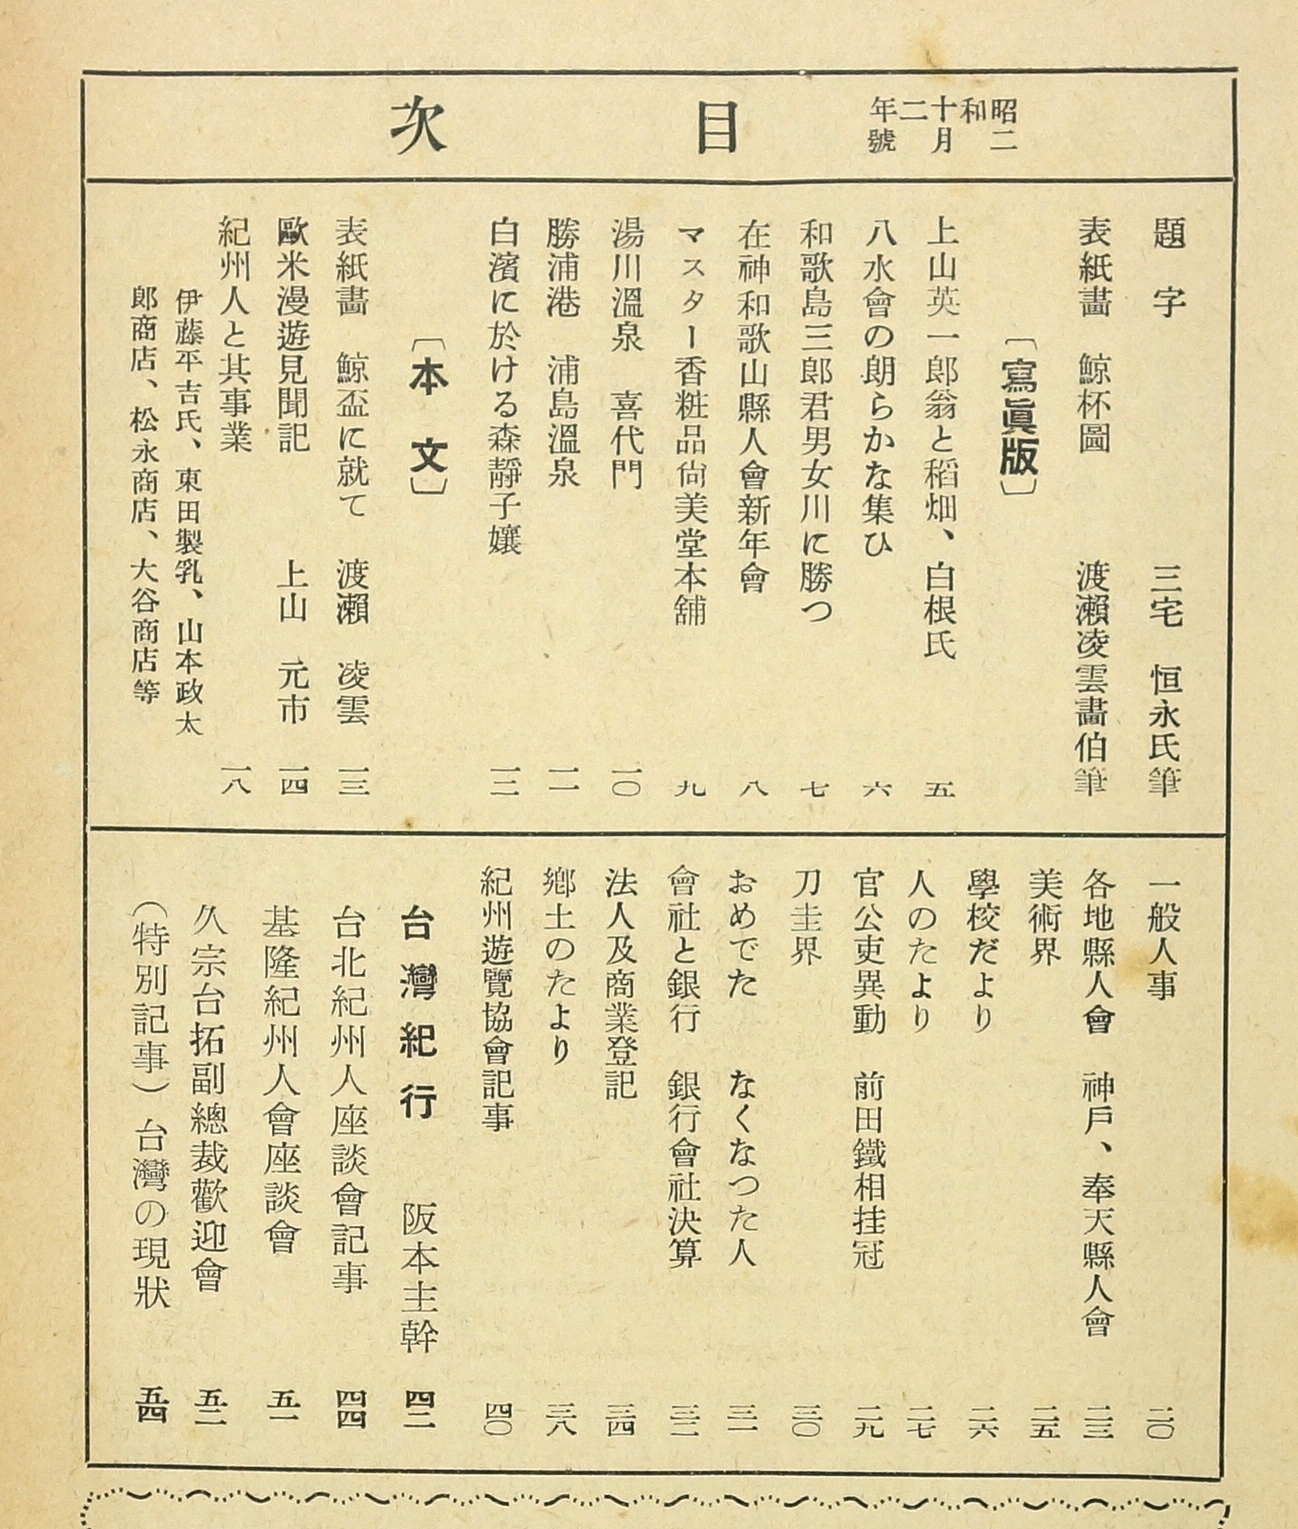 目次
昭和十二年
二月號
題字 三宅 恒永氏筆
表紙畫 鯨杯圖 渡瀨凌雲畵伯筆
〔寫眞版〕
上山英一郎翁と稻畑、白根氏 五
八水會の朗らかな集ひ 六
和歌島三郎君男女川に勝つ 七
在神和歌山縣人會新年會 八
マスター香粧品尙美堂本舖 九
湯川溫泉 喜代門 一〇
勝浦港 浦島溫泉 一一
白濱に於ける森靜子孃 一二
〔本文〕
表紙畫 鯨盃に就て 渡瀨 凌雲 一三
歐米漫遊見聞記 上山 元市 一四
紀州人と其事業 一八
伊藤平吉氏、東田製乳、山本政太
郎商店、松永商店、大谷商店等
一般人事 二〇
各地縣人會 神戶、奉天縣人會 二三
美術界 二五
學校だより 二六
人のたより 二七
官公吏異動 前田鐵相挂冠 二九
刀圭界 三〇
おめでた なくなつた人 三一
會社と銀行 銀行會社決算 三二
法人及商業登記 三四
鄕土のたより 三八
紀州遊覽協會記事 四〇
台灣紀行 阪本主幹 四二
台北紀州人座談會記事 四四
基隆紀州人會座談會 五一
久宗台拓副總裁歡迎會 五二
（特別記事）台灣の現狀 五四